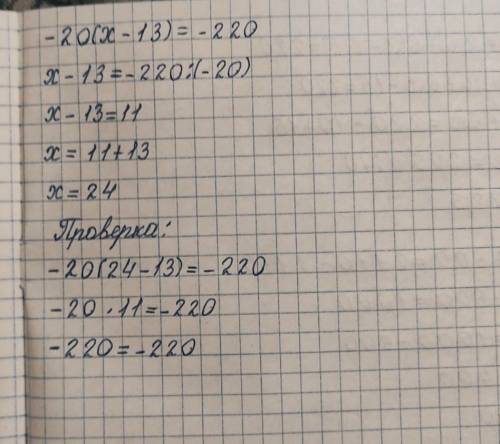 -20(x-13)=-220
x-13=-220:(-20)
x-13=11
x=11+13
x=24
Проверка:
-20(24-13)=-220
-20·11=-220
-220=-220